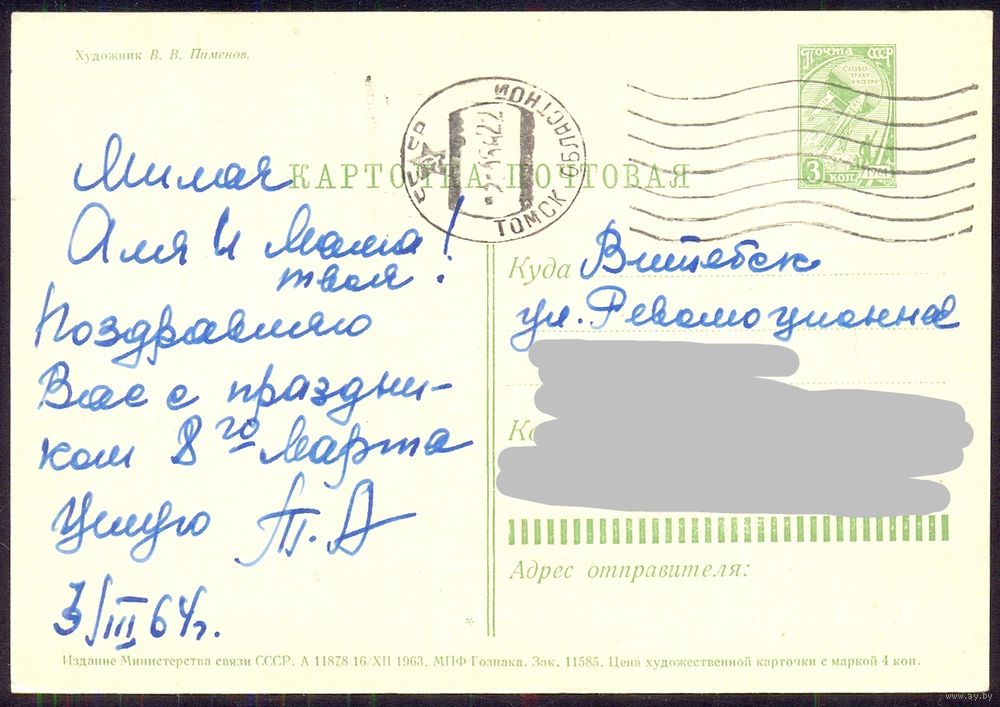 Художник В. В. Пименов.
почта СССР
СЛАВА
ТРУДУ
И НАУКЕ
3 КОП
СССР
ТОМСК ОБЛАСТНОЙ
КАРТОЧКА ПОЧТОВАЯ
Милая
Аля и Мама
твоя!
Поздравляю
Вас с праздни-
ком 8го Марта
Целую Т. А
3/III 64г.
Куда Витебск
ул. Революционная
Адрес отправителя:
Издание Министерства связи СССР. А 11878 16/XII 1963. МПФ Гознака. Зак. 11585. Цена художественной карточки с маркой 4 коп.
www.ay.by